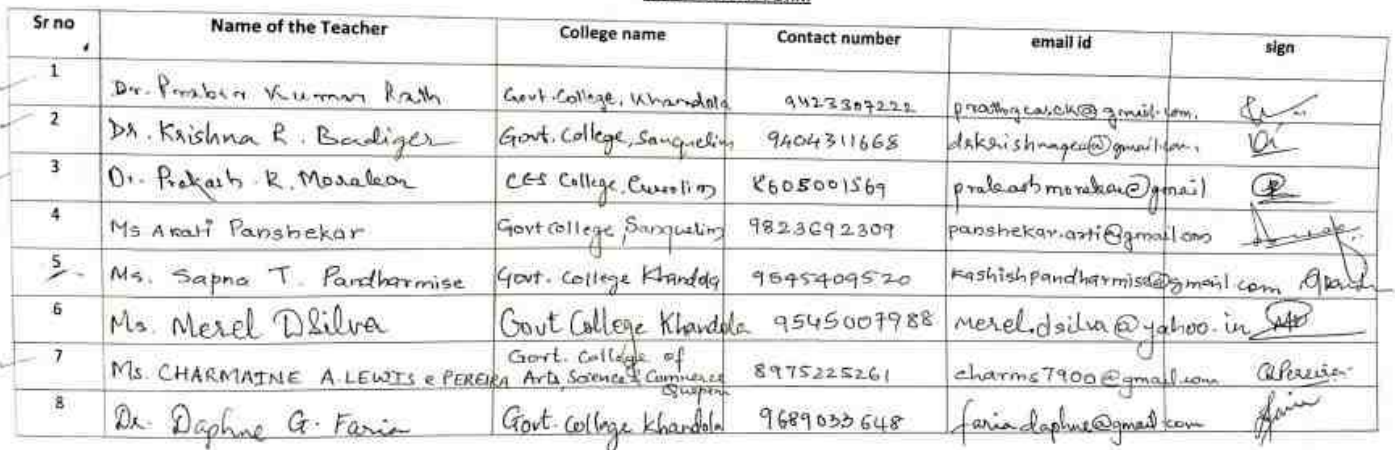 Sr no Name of the Teacher College name Contact number email id sign
1 Dr. Prabir Kumar Rath Govt. College, Khandola 9423307222
2 Dr. Krishna R. Badiger Govt. College, Sanquelim 9404311668 drkrishnagcs@gmail.com,
3 Dr. Prakash R. Morakar CES College, Cuncolim 8605001569 prakashmorakar@gmail
4 Ms Arati Panshekar Govt college, Sanquelim 9823692309 panshekar.arti@gmail.com
5 Ms. Sapna T. Pandharmise Govt. College Khandola 9545409520 kashishpandharmise@gmail.com
6 Ms. Merel DSilva Govt College Khandola 9545007988 merel.dsilva@yahoo.in
Govt. College of
7 Ms. CHARMAINE A. LEWIS e PEREIRA Arts, Science & Commerce 8975225261 charms7900@gmail.com APereira
Quepem
8 Dr. Daphne G. Faria Govt. College Khandola 9689033648 fariadaphne@gmail.com